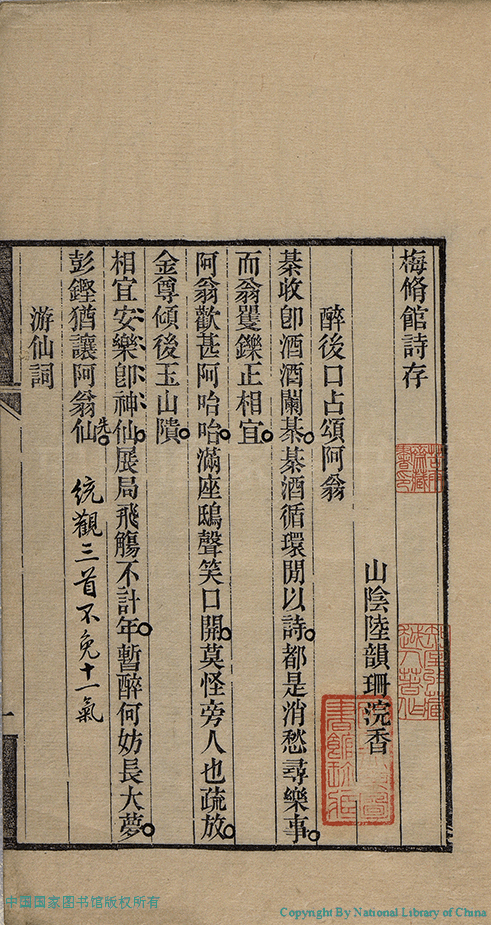 梅脩館詩存
山陰陸韻珊浣香
醉後口占頌阿翁
棊收卽酒酒闌棊。棊酒循環閒以詩。都是消愁尋樂事。
而翁矍鑠正相宜。
阿翁歡甚阿哈哈。滿座鴟聲笑口開。莫怪旁人也疏放。
金尊傾後玉山隤。
相宜安樂卽神仙。展局飛觴不計年。暫醉何妨長大夢。
彭鏗猶讓阿翁仙。先
統觀三首不免十一氣
游仙詞
一
中國国家图书馆版权所有
Copyright By National Library of China